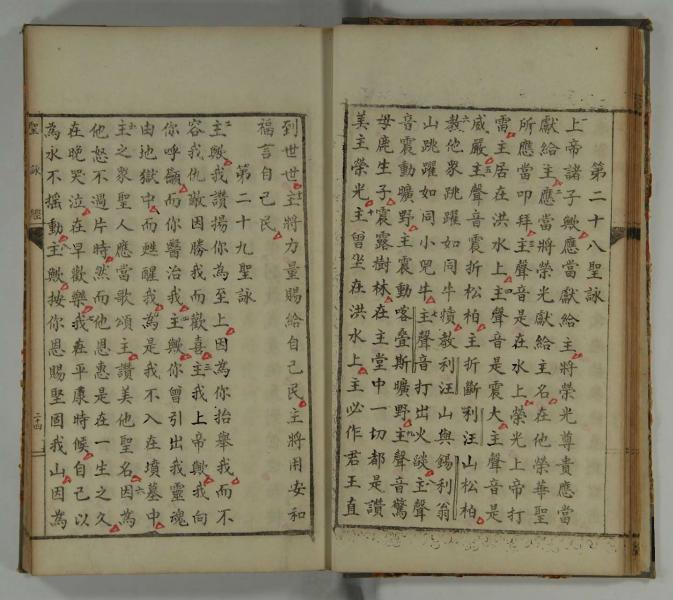 第二十八聖詠
上帝諸子歟應當獻給主將榮光尊貴應當
獻給主應當將榮光獻給主名在他榮華聖
所應當叩拜主聲音是在水上榮光上帝打
雷主居在洪水上主聲音是震大主聲音是
威嚴主聲音震折松柏主折斷利汪山松柏
教他眾跳躍如同牛犢教利汪山與錫利翁
山跳躍如同小兕牛主聲音打出火燄主聲
音震動曠野主震動喀疊斯曠野主聲音驚
母鹿生子震露樹林在主堂中一切都是讚
美主榮光主曾坐在洪水上主必作君王直
到世世主將力量賜給自己民主將用安和
福言自己民
第二十九聖詠
主歟我讚揚你為至上因為你抬舉我而不
容我仇敵因勝我而歡喜主我上帝歟我向
你呼籲而你醫治我主歟你曾引出我靈魂
由地獄中而甦醒我為是我不入在墳墓中
主之眾聖人應當歌頌主讚美他聖名因為
他怒不過片時然而他恩惠是在一生之久
在晚哭泣在早歡樂我在平康時候自己以
為永不搖動主歟按你恩賜堅固我山因為
聖詠經
二十四